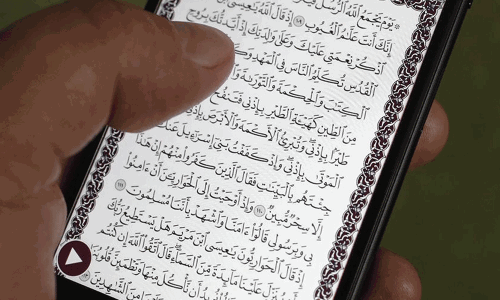 ۞ يَوْمَ يَجْمَعُ ٱللَّهُ ٱلرُّسُلَ
إِنَّكَ أَنتَ عَلَّٰمُ ٱلْغُيُوبِ ١٠٩ إِذْ قَالَ ٱللَّهُ يَٰعِيسَى
ٱذْكُرْ نِعْمَتِى عَلَيْكَ وَعَلَىٰ وَٰلِدَتِكَ إِذْ أَيَّدتُّكَ بِرُوحِ
ٱلْقُدُسِ تُكَلِّمُ ٱلنَّاسَ فِى ٱلْمَهْدِ
ٱلْكِتَٰبَ وَٱلْحِكْمَةَ وَٱلتَّوْرَىٰةَ
مِنَ ٱلطِّينِ كَهَيْـَٔةِ ٱلطَّيْرِ بِإِذْنِى فَتَنفُخُ
طَيْرًۢا بِإِذْنِى وَتُبْرِئُ ٱلْأَكْمَهَ وَٱلْأَبْرَصَ بِإِذْنِى
ٱلْمَوْتَىٰ بِإِذْنِى وَإِذْ كَفَفْتُ بَنِىٓ إِسْرَٰٓءِيلَ عَنكَ
جِئْتَهُم بِٱلْبَيِّنَٰتِ فَقَالَ ٱلَّذِينَ كَفَرُوا۟ مِنْهُمْ إِنْ هَٰذَآ
إِلَّا سِحْرٌ مُّبِينٌ ١١٠ وَإِذْ أَوْحَيْتُ إِلَى ٱلْحَوَارِيِّـۧنَ أَنْ ءَامِنُوا۟
بِى وَبِرَسُولِى قَالُوٓا۟ ءَامَنَّا وَٱشْهَدْ بِأَنَّنَا مُسْلِمُونَ ١١١
إِذْ قَالَ ٱلْحَوَارِيُّونَ يَٰعِيسَى ٱبْنَ مَرْيَمَ هَلْ يَسْتَطِيعُ رَبُّكَ
يُنَزِّلَ عَلَيْنَا مَآئِدَةً مِّنَ ٱلسَّمَآءِ قَالَ ٱتَّقُوا۟ ٱللَّهَ إِن كُنتُم
نُرِيدُ أَن نَّأْكُلَ مِنْهَا وَتَطْمَئِنَّ قُلُوبُنَا
مِنَ ٱلشَّٰهِدِينَ